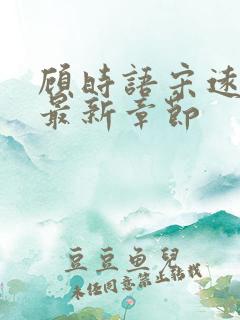 顾时語宋远
最新章節
豆豆鱼兒
未经同意禁止转载